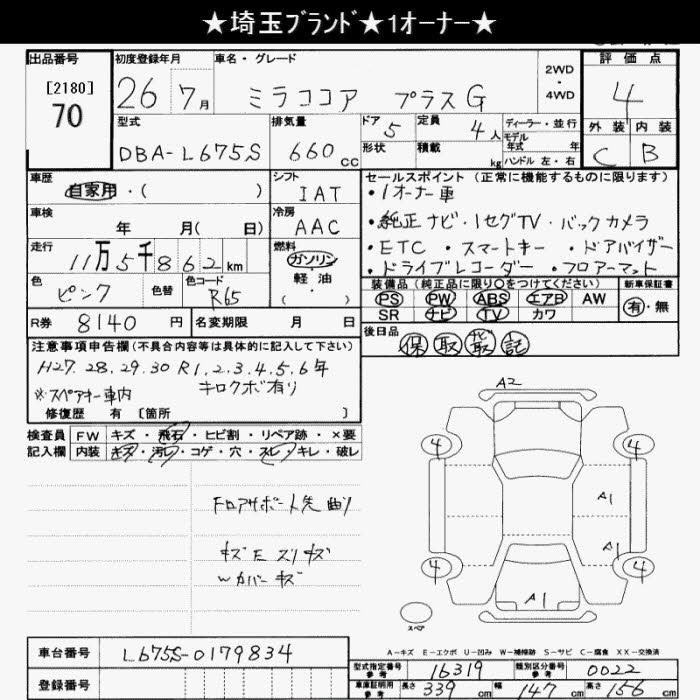 ★埼玉ﾌﾞﾗﾝﾄﾞ★1オーナー★
出品番号 初度登録年月 車名・グレード 2WD・4WD 評価点
[2180]
70
26年 7月 ミラココア プラスG 4
型式 排気量 ドア 5 定員 4人 ディーラー・並行 外装 内装
DBA-L675S 660cc 形状 積載 kg モデル年式 年 ハンドル 左・右 C B
車歴 自家用・( ) シフト IAT セールスポイント (正常に機能するものに限ります)
・1オーナー車
車検 年 月( 日) 冷房 AAC ・純正ナビ・1セグTV・バックカメラ
走行 11万5千862km 燃料 ガソリン・軽油・( ) ・ETC ・スマートキー ・ドアバイザー
・ドライブレコーダー ・フロアーマット
色 ピンク 色替 色コード R65 装備品 (純正品に限り○をつけてください) 新車保証書
PS PW ABS エアB AW 有・無
SR ナビ TV カワ
R券 8140円 名変期限 月 日 後日品 保 取 ナビ取 記
注意事項申告欄(不具合内容等は具体的に記入して下さい)
H27.28.29.30 R1.2.3.4.5.6年
キロクボ有り
※スペアキー車内
修復歴 有 [箇所 ]
検査員記入欄 FW キズ・飛石・ヒビ割・リペア跡・×要
内装 キズ・汚レ・コゲ・穴・スレ・キレ・破レ
フロアサポート先 曲り
キズ E スリキズ
Wカバーキズ
A2
4 4
A1
A1
4 4
A1
スペア
A-キズ E-エクボ U-凹み W-補修跡 S-サビ C-腐食 XX-交換済
車台番号 L675S-0179834
型式指定番号 参考 16319 類別区分番号 参考 0022
登録番号
車庫証明用 参考 長さ 339cm 幅 147cm 高さ 156cm